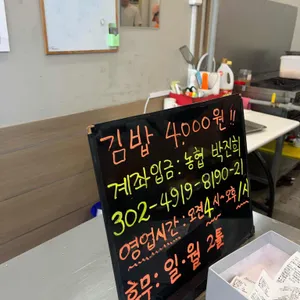 김밥 4,000원!!
계좌입금: 농협 박진희
302-4919-8190-21
영업시간: 오전4시~오후1시
휴무: 일.월 2틀